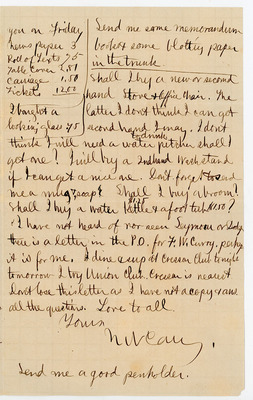 you on Friday
news paper 3
Roll of Tents 75
Table Cover 2.51
Carriage 1.50
Tickets 12.00
I bought a
looking glass 75
Send me some memorandum
books & some blotting paper
in the trunk
Shall I buy a new or second
hand Stove & Office Chair. The
latter I don't think I can get
second hand I may. I don't
think I will need a water pitcher shall I
get one? I will buy a 2nd hand Washstand
if I can get a nice one. Don't forget to send
me a mug & soap & Shall I buy a broom?
Shall I buy a water & a foot tub
I have not heard of nor seen Seymour or
there is a letter in the P.O. for F. W. Curry, perhaps
it is for me. I dine & sup at Cresson Club tonight
tomorrow I try Union Club. Cresson is nearest
Don't lose this letter as I have not a copy & ans
all the questions. Love to all.
Yours
Send me a good penholder.